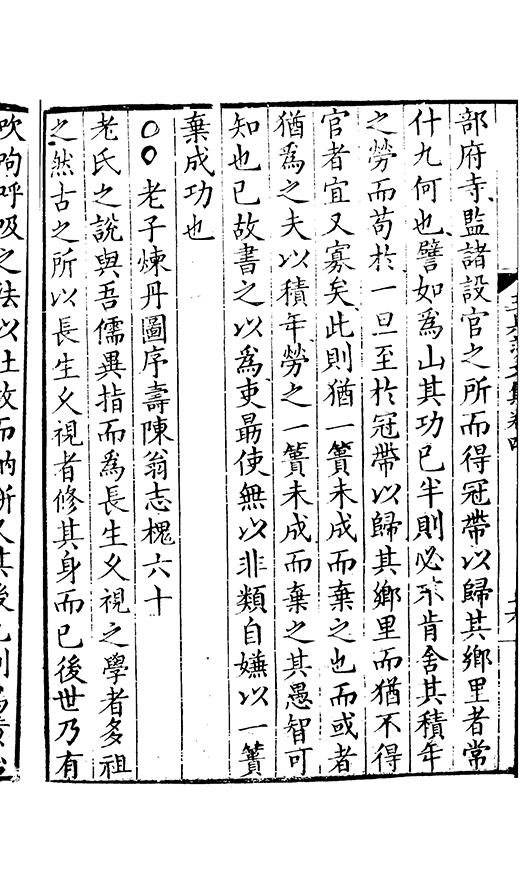 部府寺監諸設官之所而得冠帶以歸其鄉里者常
什九何也譬如為山其功已半則必不肯舍其積年
之勞而苟於一旦至於冠帶以歸其鄉里而猶不得
官者宜又寡矣此則猶一簣未成而棄之也而或者
猶為之夫以積年勞之一簣未成而棄之其愚智可
知也已故書之以為吏最使無以非類自嫌以一簣
棄成功也
○○老子煉丹圖序壽陳翁志槐六十
老氏之說與吾儒異指而為長生久視之學者多祖
之然古之所以長生久視者修其身而已後世乃有
吹呴呼吸之法以吐故而納新又其後